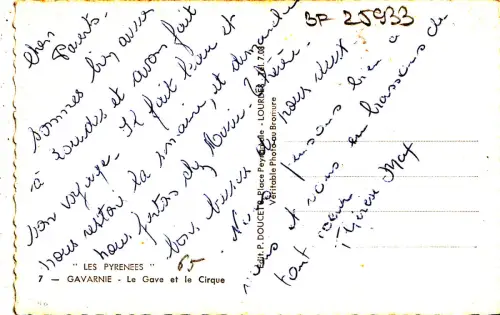 BF 25933
Chers Parents.
sommes bien arrivés
à Lourdes et avons fait
bon voyage. Il fait bien et
nous restons la semaine, et dimanche
nous partons chez Marie-
bons baisers de nous deux
Nous pensons bien à
vous et vous embrassons de
tout coeur
Thérèse Max
65
Edit. P. DOUCET - Place Peyramale - LOURDES
Véritable Photo au Bromure
" LES PYRENEES "
7 — GAVARNIE - Le Gave et le Cirque